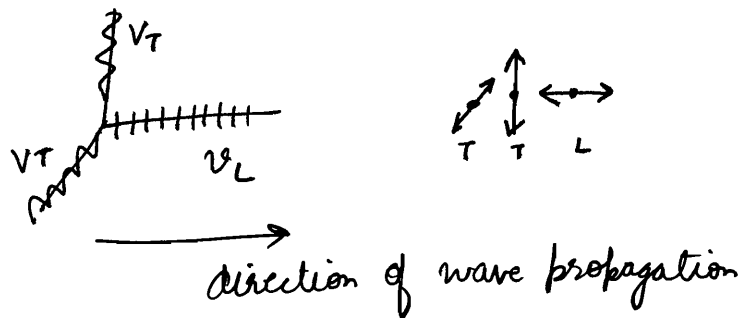 VT
VT
VL
T T L
direction of wave propagation